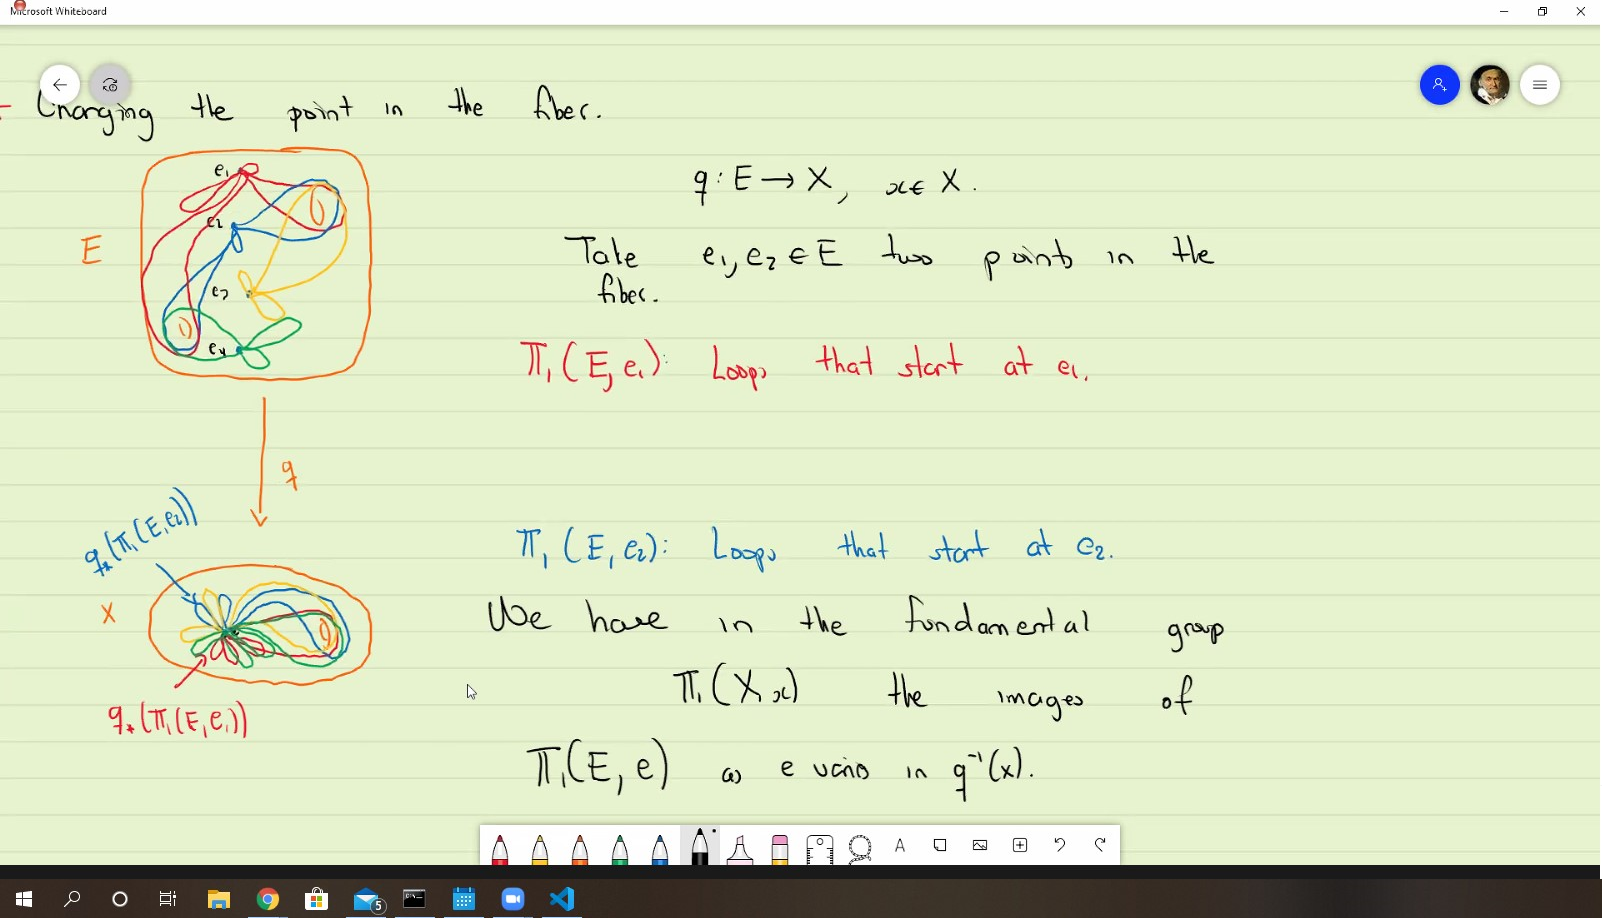 Microsoft Whiteboard
Changing the point in the fiber.
e₁
e₂
e₃
e₄
E
q
q : E → X, x ∈ X.
Take e₁, e₂ ∈ E two point in the
fiber.
π₁(E, e₁): Loops that start at e₁.
π₁(E, e₂): Loops that start at e₂.
q⁎(π₁(E, e₂))
X
q⁎(π₁(E, e₁))
We have in the fundamental group
π₁(X, x) the images of
π₁(E, e) as e varis in q⁻¹(x).
A
5